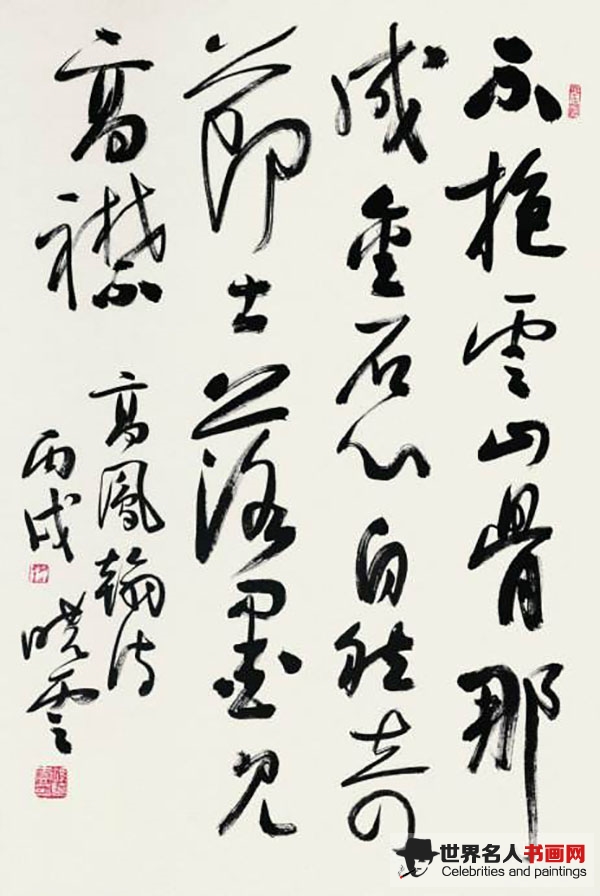 不抱雲山骨那
成金石心自然奇
節士落墨見
高襟 高鳳翰詩
丙戌 曉雲
世界名人书画网
Celebrities and paintings